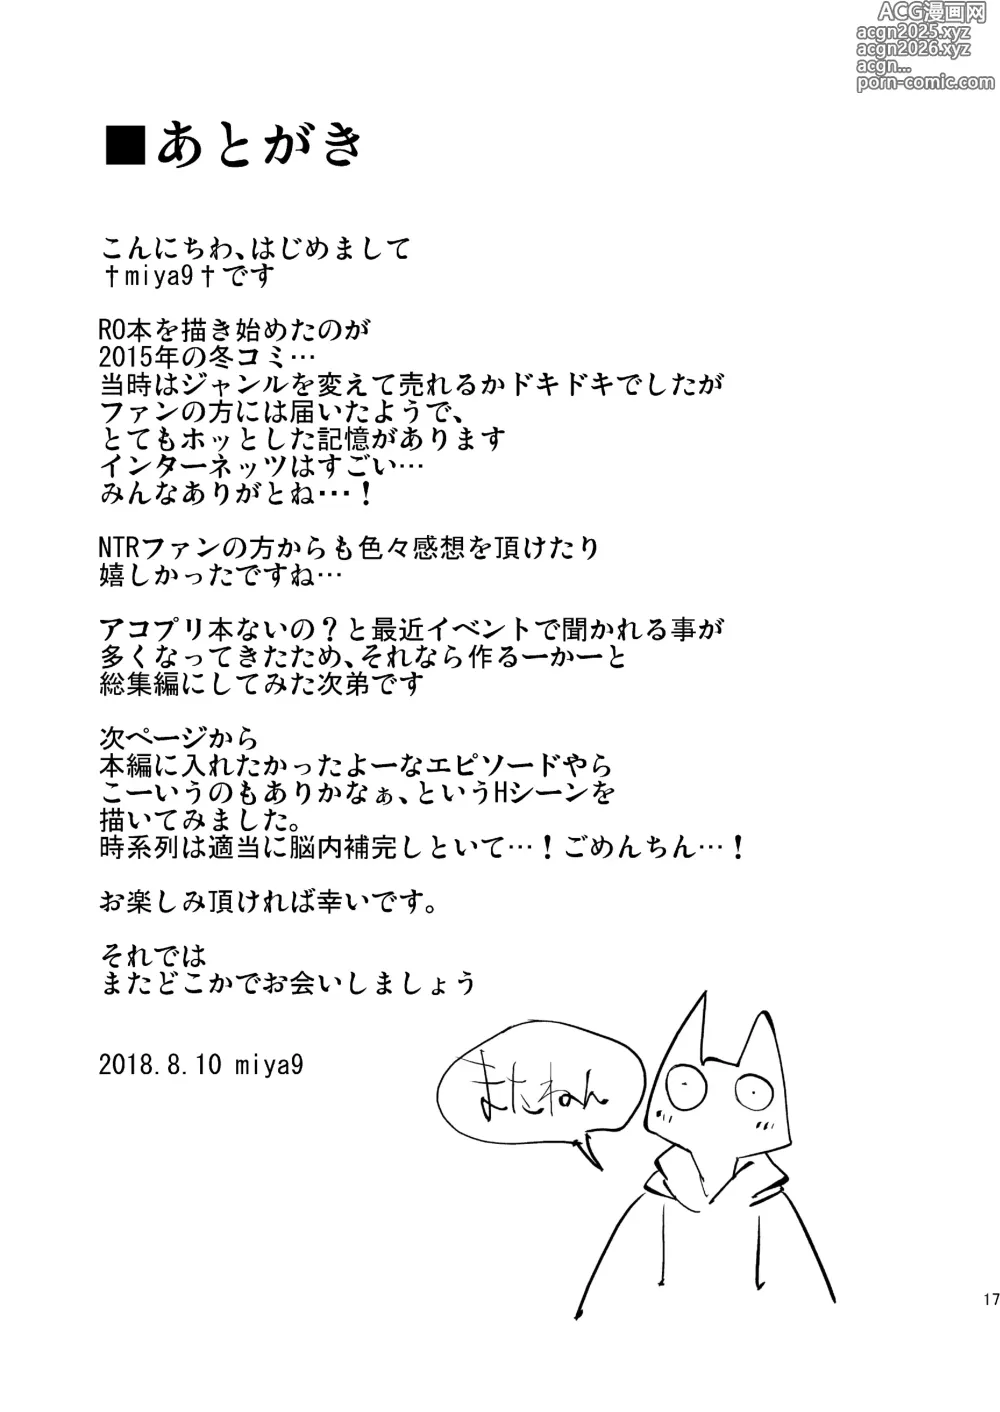 ACG漫画网
acgn2025.xyz
acgn2026.xyz
acgn...
porn-comic.com
■あとがき
こんにちわ、はじめまして
†miya9†です
RO本を描き始めたのが
2015年の冬コミ…
当時はジャンルを変えて売れるかドキドキでしたが
ファンの方には届いたようで、
とてもホッとした記憶があります
インターネッツはすごい…
みんなありがとね・・・！
NTRファンの方からも色々感想を頂けたり
嬉しかったですね…
アコプリ本ないの？と最近イベントで聞かれる事が
多くなってきたため、それなら作るーかーと
総集編にしてみた次弟です
次ページから
本編に入れたかったよーなエピソードやら
こーいうのもありかなぁ、というHシーンを
描いてみました。
時系列は適当に脳内補完しといて…！ごめんちん…！
お楽しみ頂ければ幸いです。
それでは
またどこかでお会いしましょう
2018.8.10 miya9
またねん
17